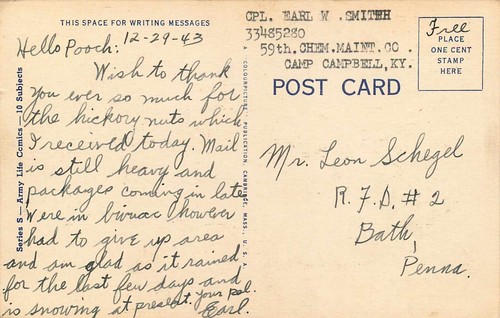 THIS SPACE FOR WRITING MESSAGES
Hello Pooch: 12-29-43
Wish to thank
you ever so much for
the hickory nuts which
I received today. Mail
is still heavy and
packages coming in late.
Were in bivuac however
had to give up area
and am glad as it rained
for the last few days and
is snowing at present. Your pal.
Earl.
Series S—Army Life Comics—10 Subjects
A COLOURPICTURE PUBLICATION, CAMBRIDGE, MASS., U. S. A.
CPL. EARL W .SMITEH
33485280
59th.CHEM.MAINT.CO .
CAMP CAMPBELL,KY.
POST CARD
Free
PLACE
ONE CENT
STAMP
HERE
Mr. Leon Schegel
R.F.D. #2
Bath,
Penna.